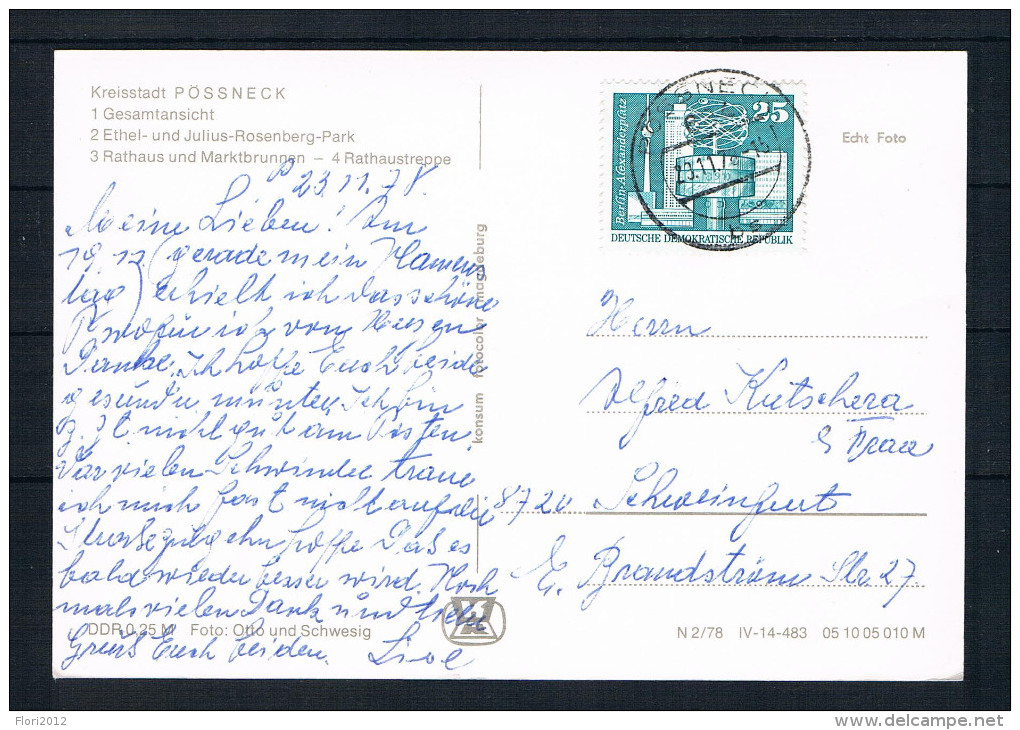 Kreisstadt PÖSSNECK
1 Gesamtansicht
2 Ethel- und Julius-Rosenberg-Park
3 Rathaus und Marktbrunnen – 4 Rathaustreppe
P 23.11.78.
Meine Lieben! Am
19.11. (gerade mein Namens
tag) erhielt ich das schöne
P wofür ich von Herzen
Danke. Ich hoffe Euch beide
gesund u munter. Ich bin
z. Zt. nicht gut am Posten
Vor vielen Schwindel traue
ich mich fast nicht auf die
Strasse zu gehn hoffe Das es
bald wieder besser wird. Noch
mals vielen Dank und liebe
Grüß Euch beiden.
DDR 0,25 M Foto: Otto und Schwesig
konsum fotocolor magdeburg
25
Berlin-Alexanderplatz
DEUTSCHE DEMOKRATISCHE REPUBLIK
Echt Foto
Herrn
Alfred Kutschera
& Frau
8720 Schweinfurt
E. Brandström Str. 27
N 2/78 IV-14-483 05 10 05 010 M
Flori2012
www.delcampe.net